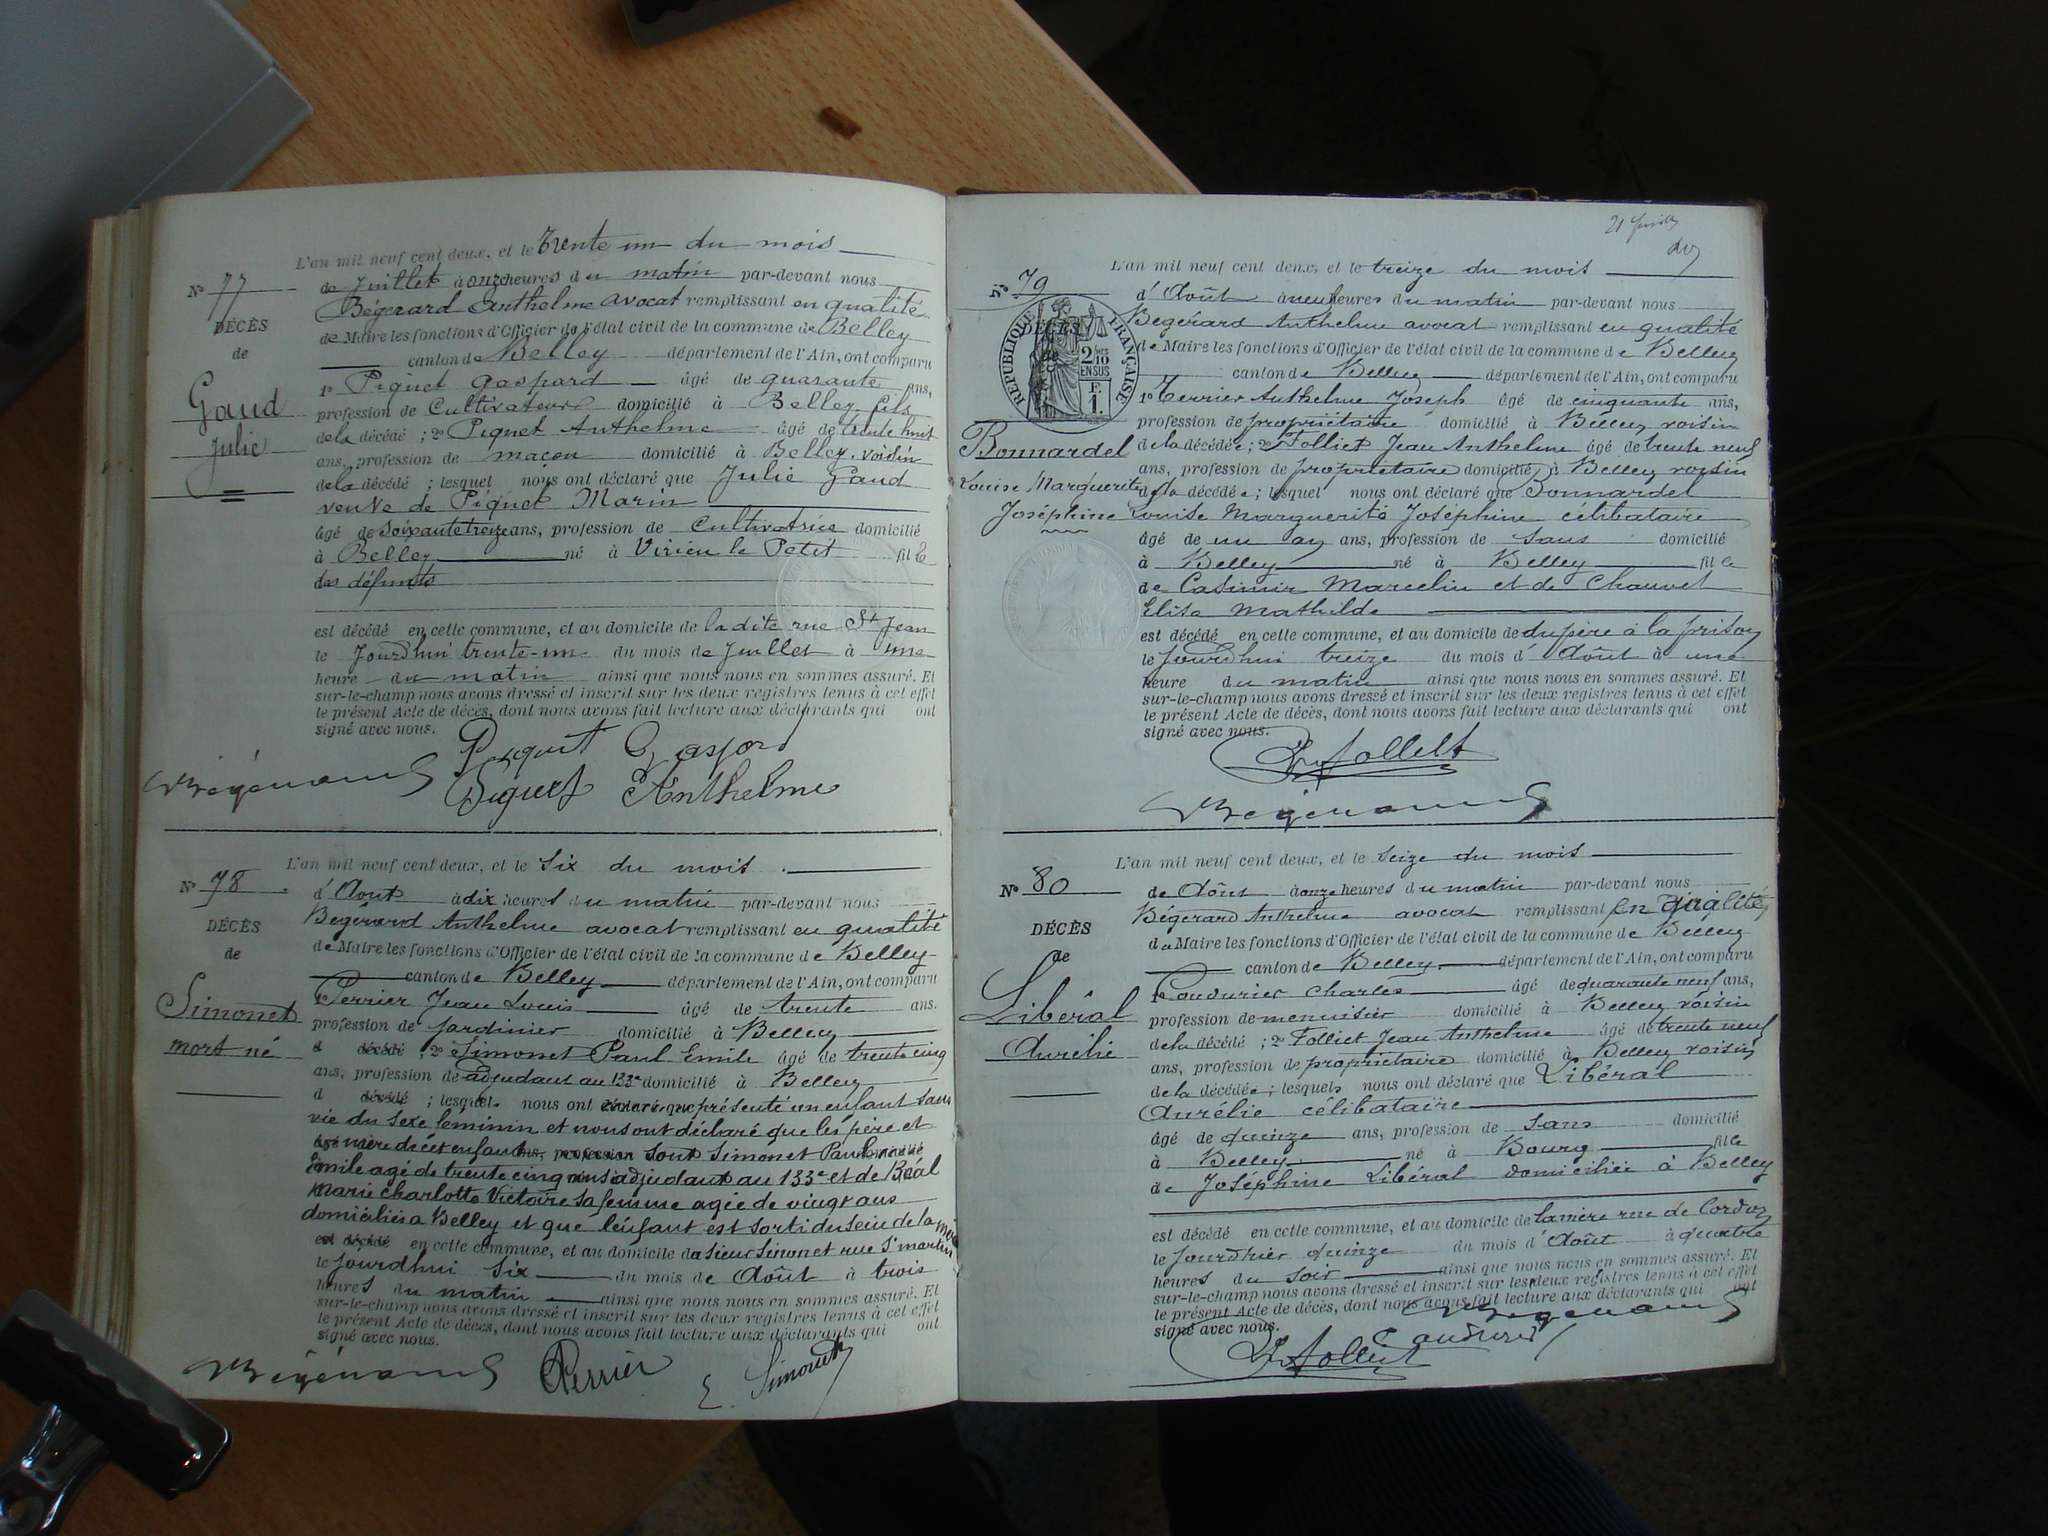 L'an mil neuf cent deux, et le Trente un du mois
N° 77
de Juillet à onze heures du matin par-devant nous
Bégerard Anthelme avocat remplissant en qualité
DÉCÈS
de Maire les fonctions d'Officier de l'état civil de la commune de Belley
de
canton de Belley département de l'Ain, ont comparu
1° Piquet Gaspard âgé de quarante ans,
Gaud
profession de Cultivateur domicilié à Belley fils
de la décédé ; 2° Piquet Anthelme âgé de trente huit
Julie
ans, profession de maçon domicilié à Belley, voisin
de la décédé ; lesquel nous ont déclaré que Julie Gaud
veuve de Piquet Marin
âgé de soixante treize ans, profession de Cultivatrice domicilié
à Belley né à Virieu le Petit fille
des défunts
est décédé en cette commune, et au domicile de la dite rue St Jean
le Jourdhui trente-un du mois de Juillet à une
heure du matin ainsi que nous nous en sommes assuré. Et
sur-le-champ nous avons dressé et inscrit sur les deux registres tenus à cet effet
le présent Acte de décès, dont nous avons fait lecture aux déclarants qui ont
signé avec nous.
Piquet Gaspard
Piquet Anthelme
L'an mil neuf cent deux, et le Six du mois
N° 78
d'Aout à dix heures du matin par-devant nous
Bégerard Anthelme avocat remplissant en qualité
DÉCÈS
de Maire les fonctions d'Officier de l'état civil de la commune de Belley
de
canton de Belley département de l'Ain, ont comparu
1° Perrier Jean Louis âgé de trente ans.
Simonet
profession de Jardinier domicilié à Belley
mort né
d décédé ; 2° Simonet Paul Emile âgé de trente cinq
ans, profession de adjudant au 133e domicilié à Belley
d décédé ; lesquels nous ont déclaré que présenté un enfant sans
vie du sexe féminin et nous ont déclaré que les père et
mère du dit enfant sont Simonet Paul
Emile agé de trente cinq ans adjudant au 133e et de Réal
Marie Charlotte Victoire sa femme agée de vingt ans
domiciliés à Belley et que l'enfant est sorti du sein de la mère
est décédé en cette commune, et au domicile du sieur Simonet rue St martin
le Jourdhui Six du mois de Août à trois
heures du matin ainsi que nous nous en sommes assuré. Et
sur-le-champ nous avons dressé et inscrit sur les deux registres tenus à cet effet
le présent Acte de décès, dont nous avons fait lecture aux déclarants qui ont
signé avec nous.
Perrier E. Simonet
21
L'an mil neuf cent deux, et le treize du mois
N° 79
d'Août à neuf heures du matin par-devant nous
Bégerard Anthelme avocat remplissant en qualité
DÉCÈS
de
RÉPUBLIQUE FRANÇAISE
2/10 EN SUS
F. 1.
de Maire les fonctions d'Officier de l'état civil de la commune de Belley
canton de Belley département de l'Ain, ont comparu
1° Terrier Anthelme Joseph âgé de cinquante ans,
profession de propriétaire domicilié à Belley voisin
Bonnardel
de la décédée ; 2° Folliet Jean Anthelme âgé de trente neuf
ans, profession de propriétaire domicilié à Belley voisin
Louise Marguerite
de la décédée ; lesquel nous ont déclaré que Bonnardel
Joséphine
Louise Marguerite Joséphine célibataire
âgé de un an ans, profession de sans domicilié
à Belley né à Belley fille
de Casimir Marcelin et de Chauvet
Elisa Mathilde
est décédé en cette commune, et au domicile de du père à la prison
le Jourdhui treize du mois d'Août à une
heure du matin ainsi que nous nous en sommes assuré. Et
sur-le-champ nous avons dressé et inscrit sur les deux registres tenus à cet effet
le présent Acte de décès, dont nous avons fait lecture aux déclarants qui ont
signé avec nous.
Folliet
L'an mil neuf cent deux, et le Seize du mois
N° 80
de Août à onze heures du matin par-devant nous
Bégerard Anthelme avocat remplissant en qualité
DÉCÈS
de Maire les fonctions d'Officier de l'état civil de la commune de Belley
de
canton de Belley département de l'Ain, ont comparu
1° Coudurier Charles âgé de quarante neuf ans,
Libéral
profession de menuisier domicilié à Belley voisin
de la décédé ; 2° Folliet Jean Anthelme âgé de trente neuf
Aurélie
ans, profession de propriétaire domicilié à Belley voisin
de la décédée ; lesquels nous ont déclaré que Libéral
Aurélie célibataire
âgé de quinze ans, profession de sans domicilié
à Belley né à Bourg fille
de Joséphine Libéral domiciliée à Belley
est décédé en cette commune, et au domicile de la mère rue de Cordon
le Jourdhier quinze du mois d'Août à quatre
heures du soir ainsi que nous nous en sommes assuré. Et
sur-le-champ nous avons dressé et inscrit sur les deux registres tenus à cet effet
le présent Acte de décès, dont nous avons fait lecture aux déclarants qui ont
signé avec nous.
Coudurier
Folliet